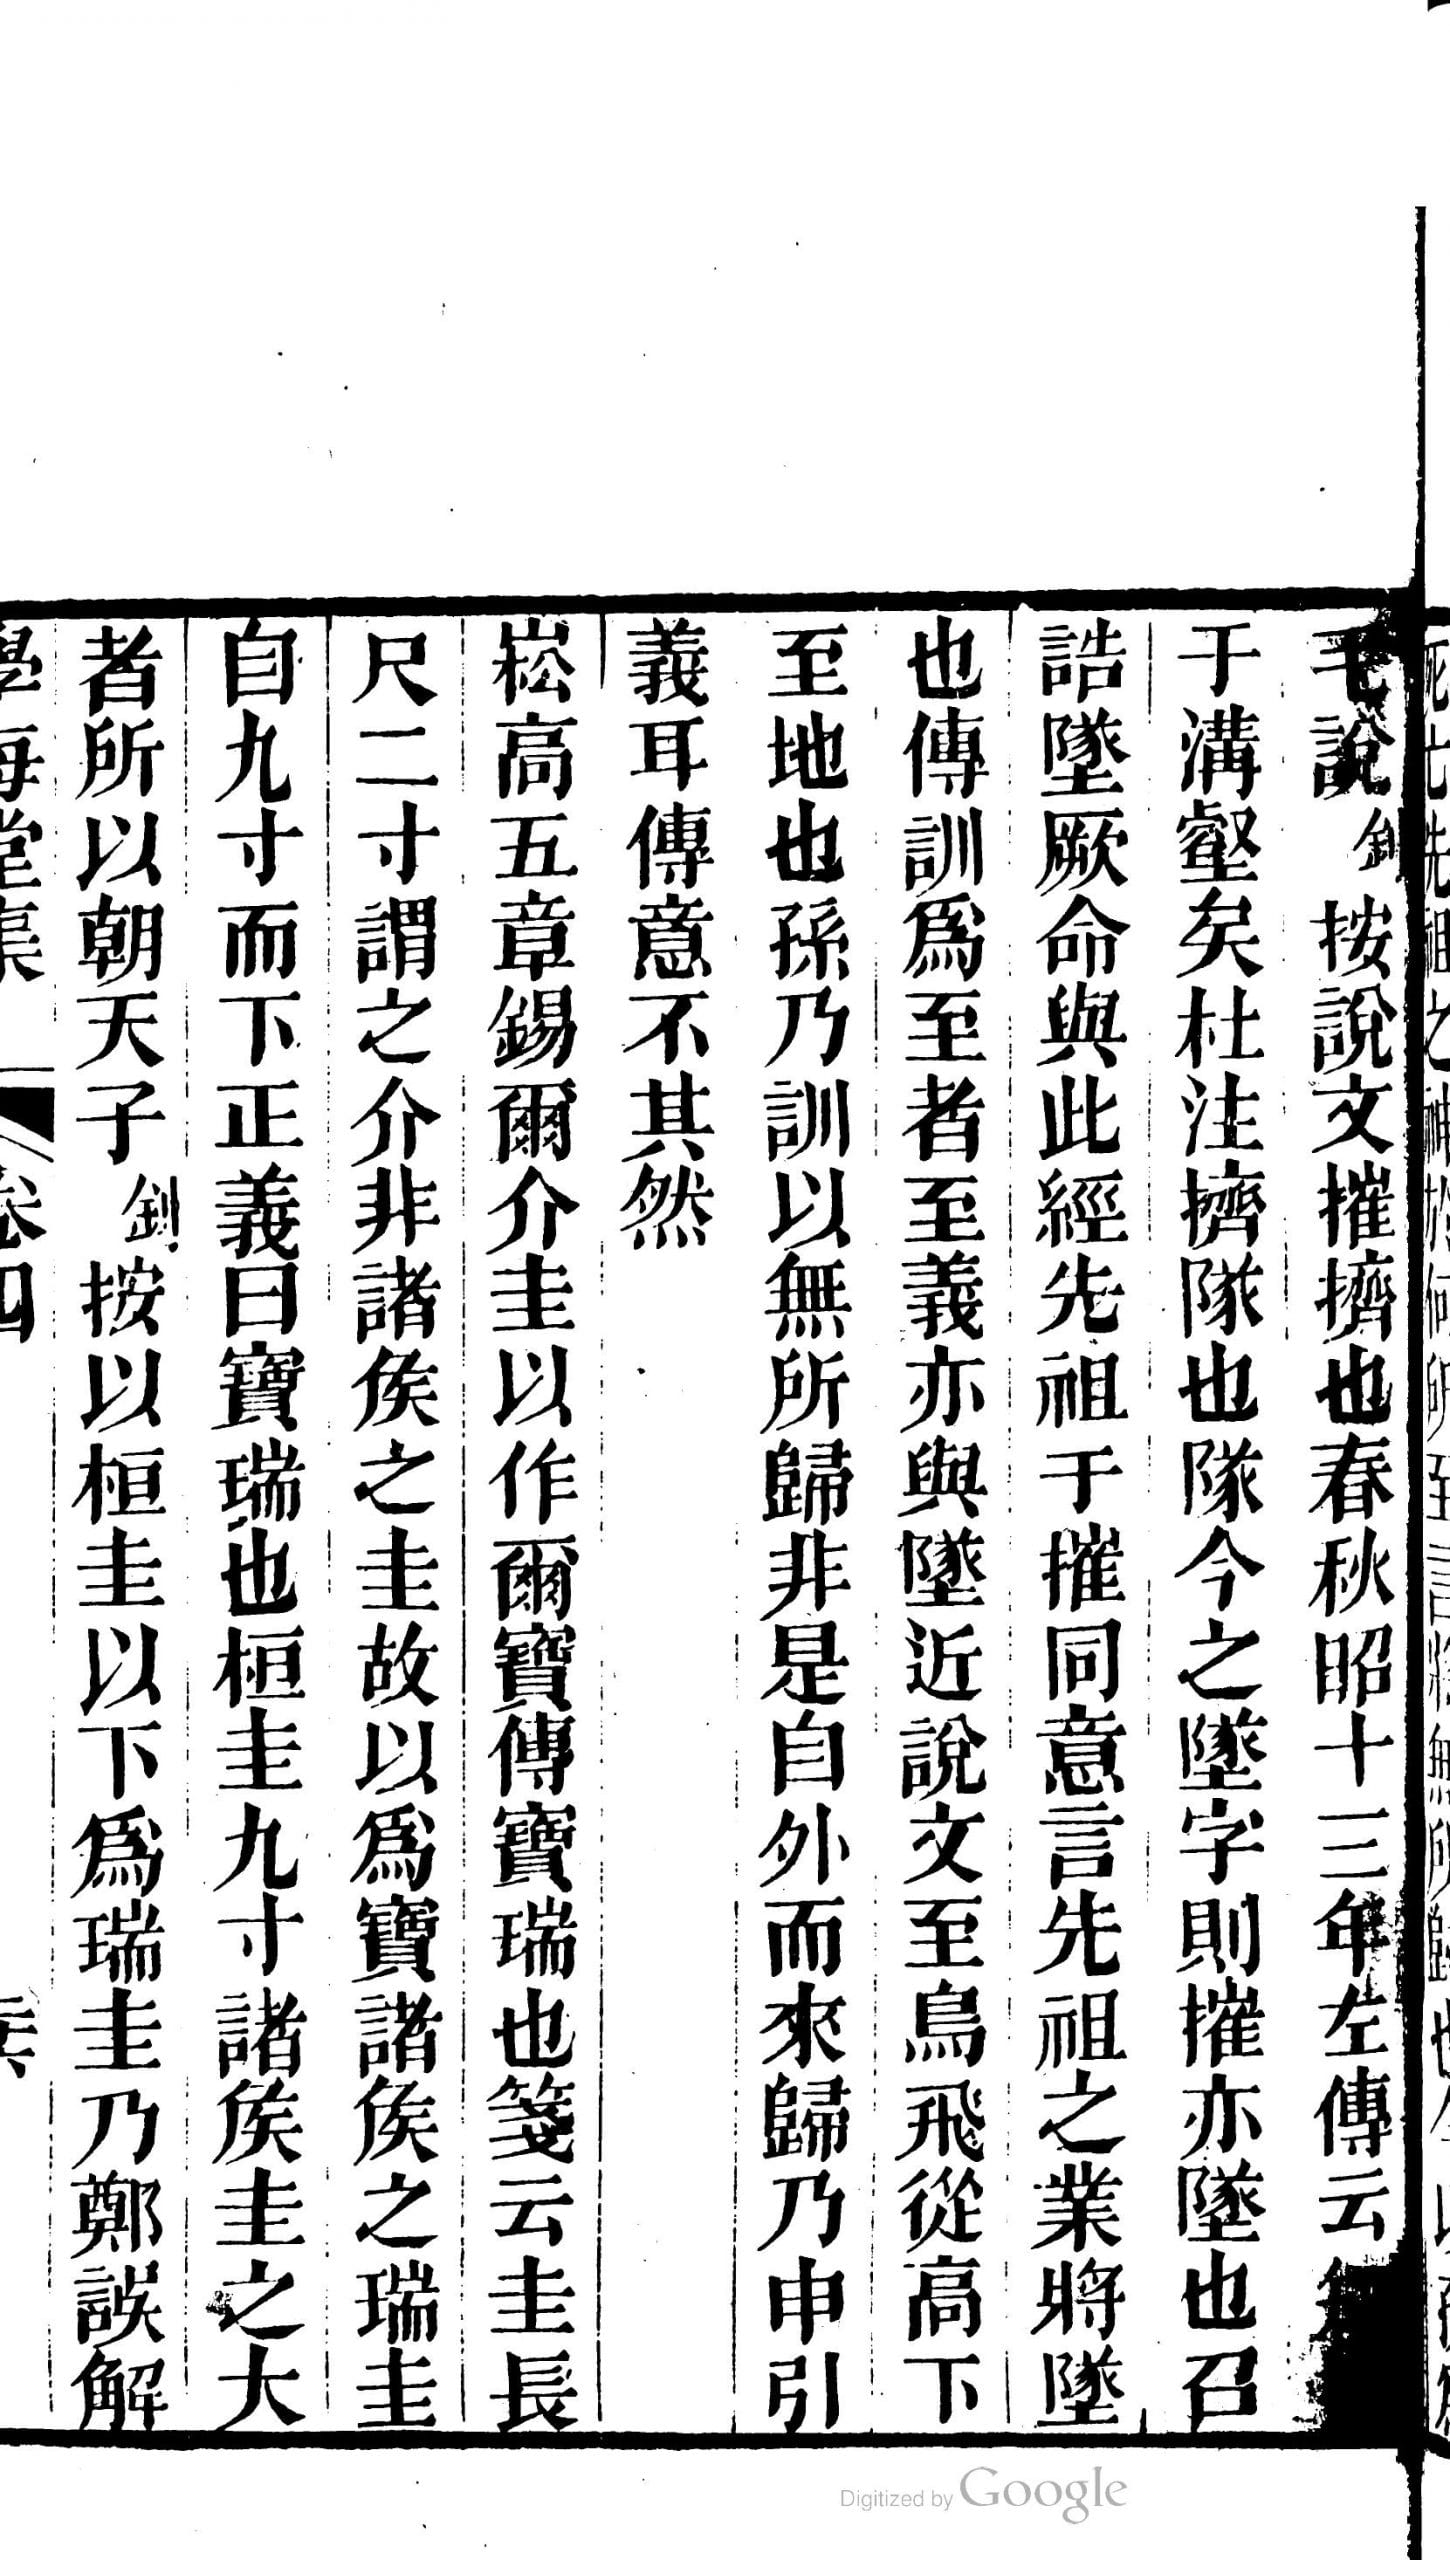 毛說釗按說文摧擠也春秋昭十三年左傳云
于溝壑矣杜注擠隊也隊今之墜字則摧亦墜也召
誥墜厥命與此經先祖于摧同意言先祖之業將墜
也傳訓爲至者至義亦與墜近說文至鳥飛從高下
至地也孫乃訓以無所歸非是自外而來歸乃申引
義耳傳意不其然
崧高五章錫爾介圭以作爾寶傳寶瑞也箋云圭長
尺二寸謂之介非諸侯之圭故以爲寶諸侯之瑞圭
自九寸而下正義曰寶瑞也桓圭九寸諸侯圭之大
者所以朝天子釗按以桓圭以下爲瑞圭乃鄭誤解
學海堂集 卷四
Digitized by Google